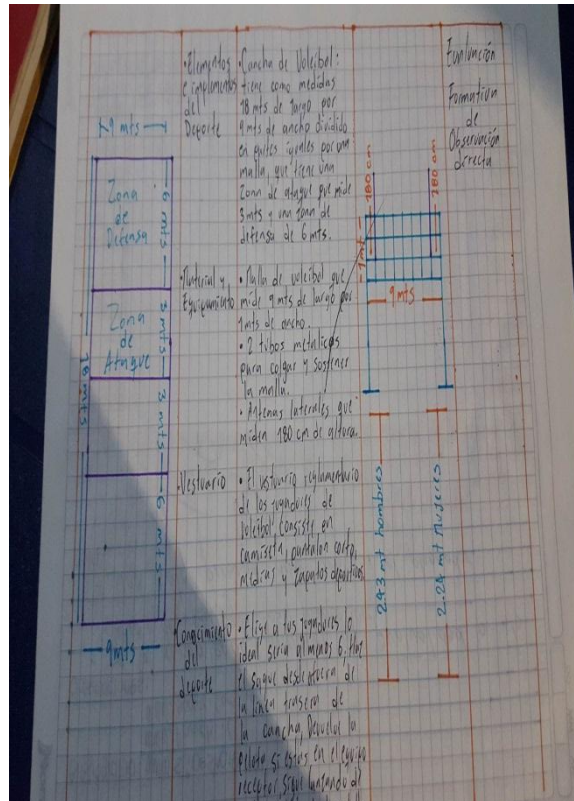 Elementos
e implementos
del
Deporte
• Cancha de Voleibol:
tiene como medidas
18 mts de largo por
9 mts de ancho dividido
en partes iguales por una
malla, que tiene una
zona de ataque que mide
3 mts y una zona de
defensa de 6 mts.
Material y
Equipamiento
• Malla de voleibol que
mide 9 mts de largo por
1 mts de ancho.
• 2 tubos metálicos
para colgar y sostener
la malla.
• Antenas laterales que
miden 180 cm de altura.
Vestuario
• El vestuario reglamentario
de los jugadores de
voleibol, consiste en
camiseta, pantalon corto,
medias y zapatos deportivos.
Conocimiento
del
deporte
• Elige a tus jugadores lo
ideal sería al menos 6, Haz
el saque desde afuera de
la línea trasera de
la cancha, Devuelve la
pelota si estás en el equipo
receptor, sigue lanzando
Evaluación
Formativa
de
Observación
directa
9 mts
Zona
de
Defensa
6 mts
Zona
de
Ataque
3 mts
3 mts
18 mts
6 mts
9mts
180 cm
180 cm
1 mt
9mts
2.43 mt hombres
2.24 mt Mujeres